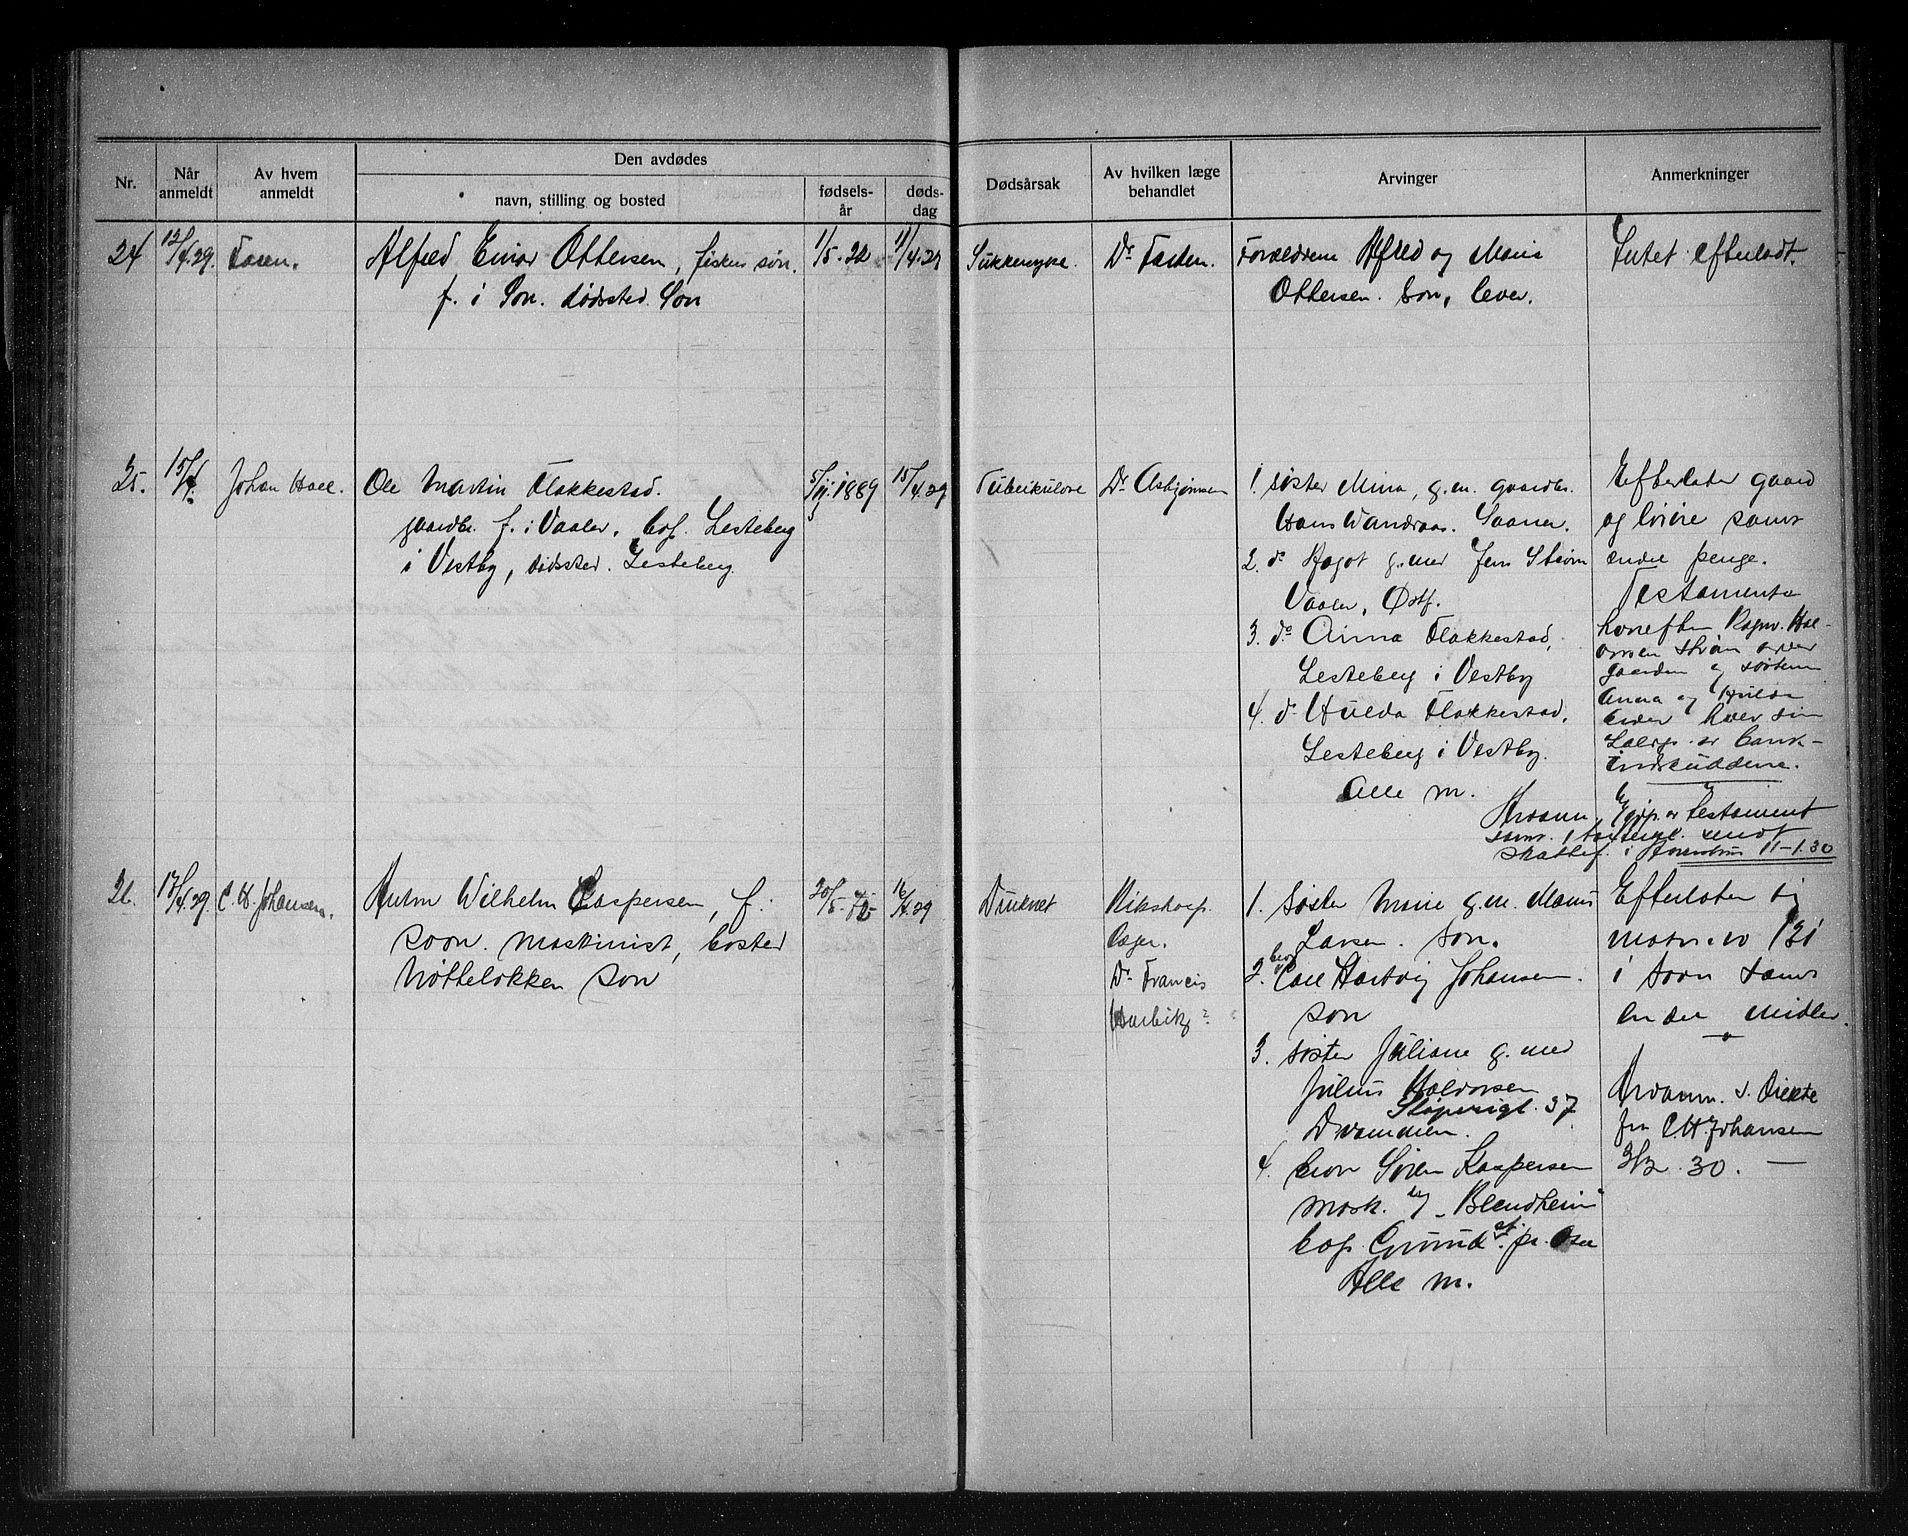 Nr.
Når anmeldt
Av hvem anmeldt
Den avdødes
navn, stilling og bosted
fødsels-år
døds-dag
Dødsårsak
Av hvilken læge behandlet
Arvinger
Anmerkninger
24
12/4.29.
Faren.
Alfred Einar Ottersen, fiskers søn.
f. i Son. dødssted Son
1/5.22
11/4.29
Sukkersyke.
Dr
Forældrene Alfred og Marie
Ottersen. Son, lever.
Intet efterladt.
25.
15/4.
Johan
Ole Martin Flakkestad.
gaardbr. f. i Vaaler, bof. Lesteberg
i Vestby, dødssted. Lesteberg
1889
15/4.29
Tuberkulose
Dr Asbjørnsen
1. søster Mina, g.m. gaardbr.
Hans Wandraas. Saaner.
2. do g. med Jens Strøm
Vaaler, Østf.
3. do Anna Flakkestad,
Lesteberg i Vestby
4. do Hulda Flakkestad,
Lesteberg i Vestby.
Alle m.
Efterlater gaard
og løsøre samt
endel penge.
Testamente
hvorefter Ragnv. Hal-
vorsen Strøm
gaarden og søstrene
Anna og Hulda
hver sin
bank-
indskuddene.
testament
samt sendt
skattef. i 11-1.30
26.
17/4.29.
C. H. Johansen.
Anton Wilhelm Caspersen, f. i
Soon. Maskinist, bosted
Nøtteløkken Son
20/5-72
16/4.29
Druknet
Rikshosp.
læger.
Dr Francis
Harbitz?
1. Søster Marie g.m. Manus
Larsen. Son.
2. bror Carl Hartvig Johansen.
Son
3. søster Juliane g. med
Julius Halvorsen
Støperigt. 37
Drammen.
4. bror Søren Kaspersen
mask. "Blendheim"
bof. Grorud st. pr. Oslo
Alle m.
Efterlater sig
matr. no 131
i Soon samt
en del midler.
Arvanm. s. direkte
fra C.H. Johansen
30. —